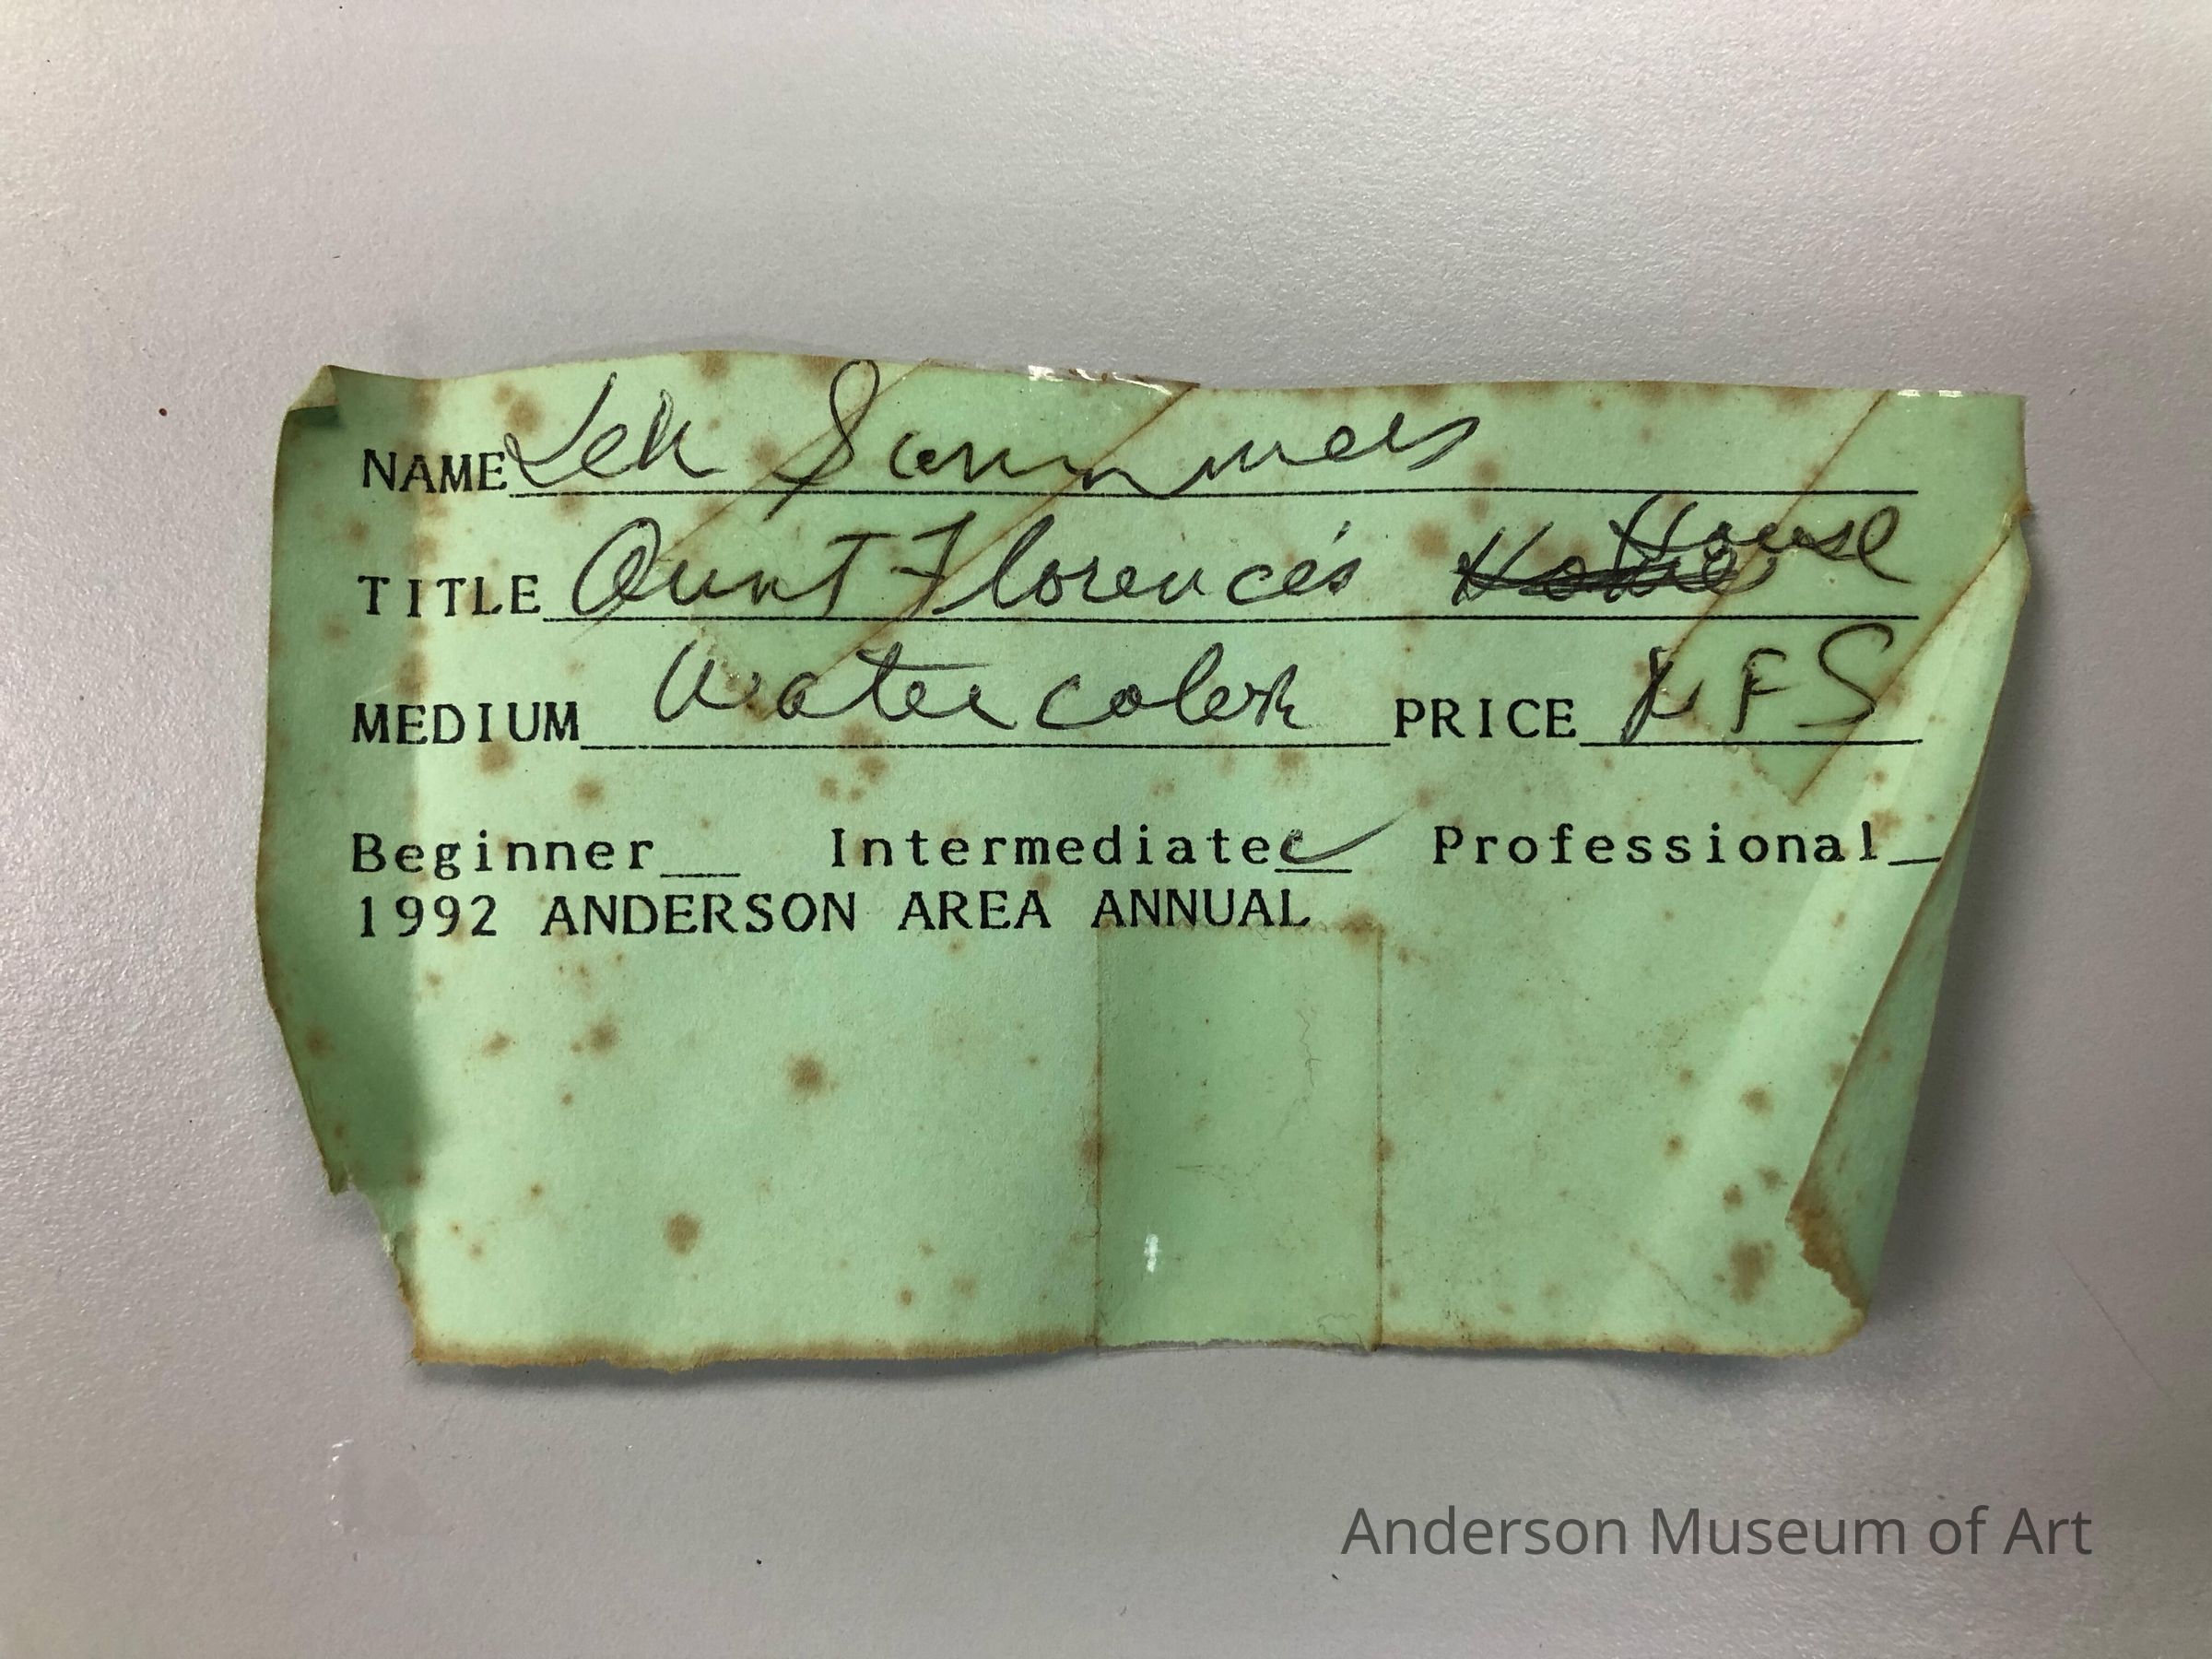 NAME Len Summers
TITLE Aunt Florence's House
MEDIUM Watercolor PRICE NFS
Beginner__ Intermediate✓ Professional_
1992 ANDERSON AREA ANNUAL
Anderson Museum of Art